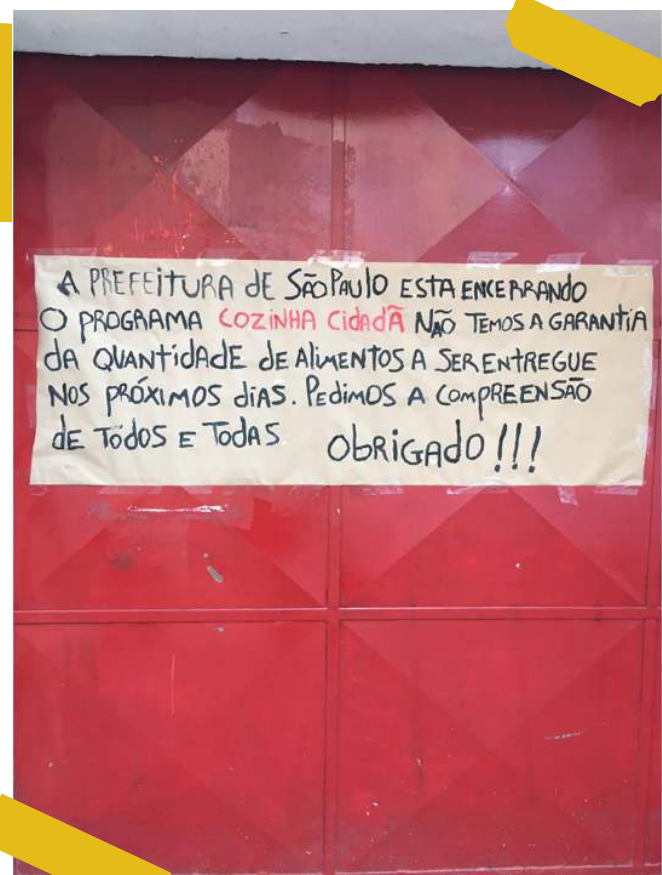 A PREFEITURA DE SÃO PAULO ESTA ENCERRANDO
O PROGRAMA COZINHA CIDADÃ NÃO TEMOS A GARANTIA
DA QUANTIDADE DE ALIMENTOS A SER ENTREGUE
NOS PRÓXIMOS DIAS. PEDIMOS A COMPREENSÃO
DE TODOS E TODAS OBRIGADO!!!